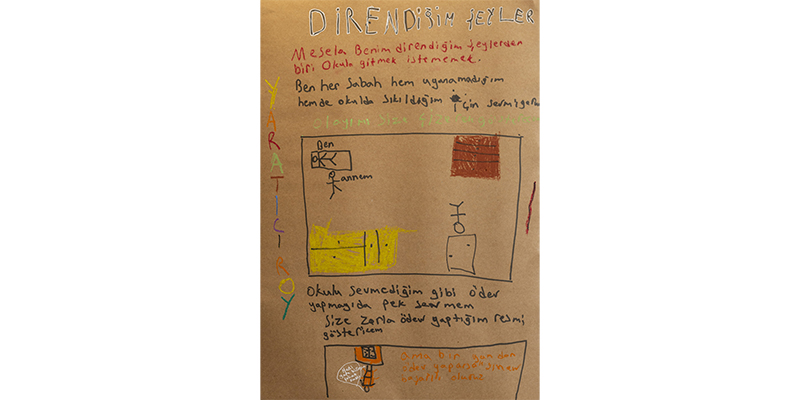 DİRENDİĞİM ŞEYLER
Mesela Benim direndiğim şeylerden
biri Okula gitmek istememek.
Ben her Sabah hem uyanamadığım
hemde okulda sıkıldığım için
YARATICI ROY
Ben
annem
Okulu Sevmediğim gibi ödev
yapmayıda pek sevmem
Size Zorla ödev yaptığım resmi
göstericem
ama bir yandan
ödev yaparsan
başarılı olursun